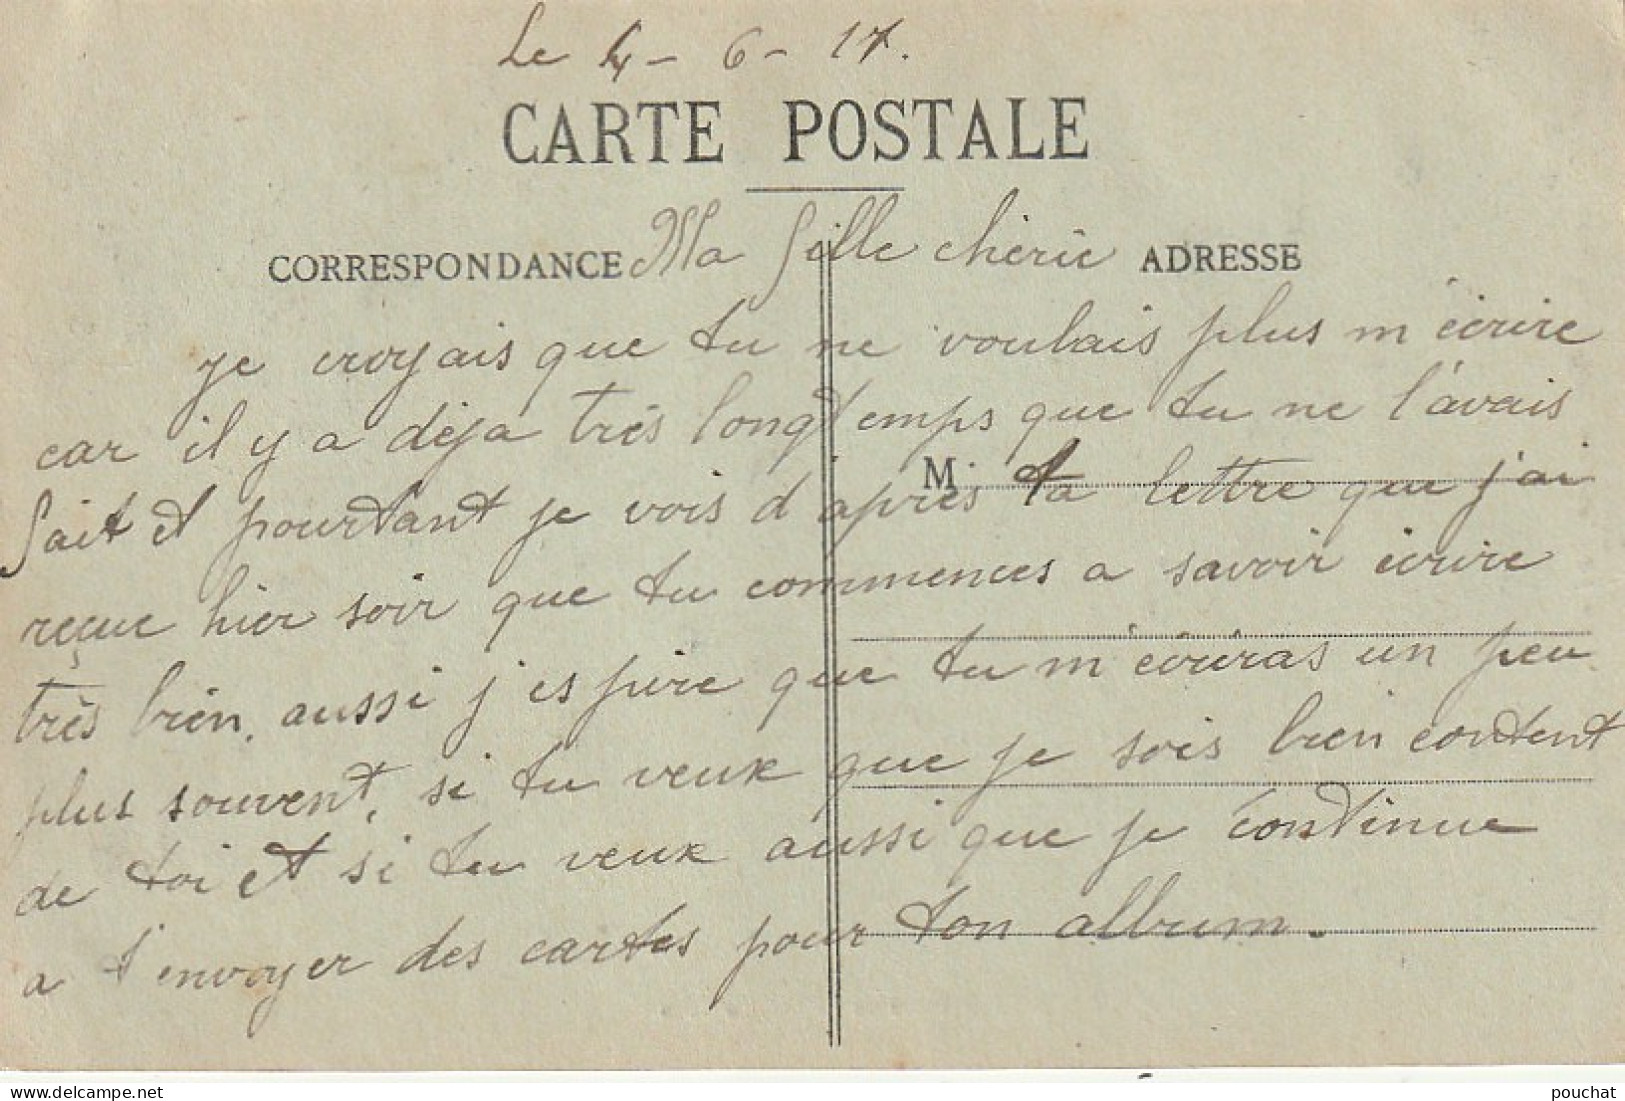 Le 4 - 6 - 17.
CARTE POSTALE
CORRESPONDANCE Ma fille cherie ADRESSE
je croyais que tu ne voulais plus m'écrire
car il y a déja très longtemps que tu ne l'avais
M
fait et pourtant je vois d'après ta lettre que j'ai
reçue hier soir que tu commences a savoir écrire
très bien, aussi j'espire que tu m'écriras un peu
plus souvent, si tu veux que je sois bien content
de toi et si tu veux aussi que je continue
a t'envoyer des cartes pour ton album.
pouchat